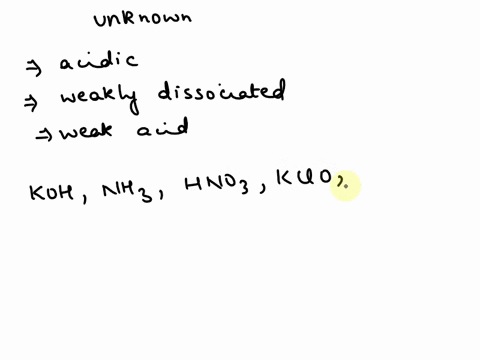 unknown
⇒ acidic
⇒ weakly dissociated
⇒ weak acid
KOH, NH₃, HNO₃, KClO,